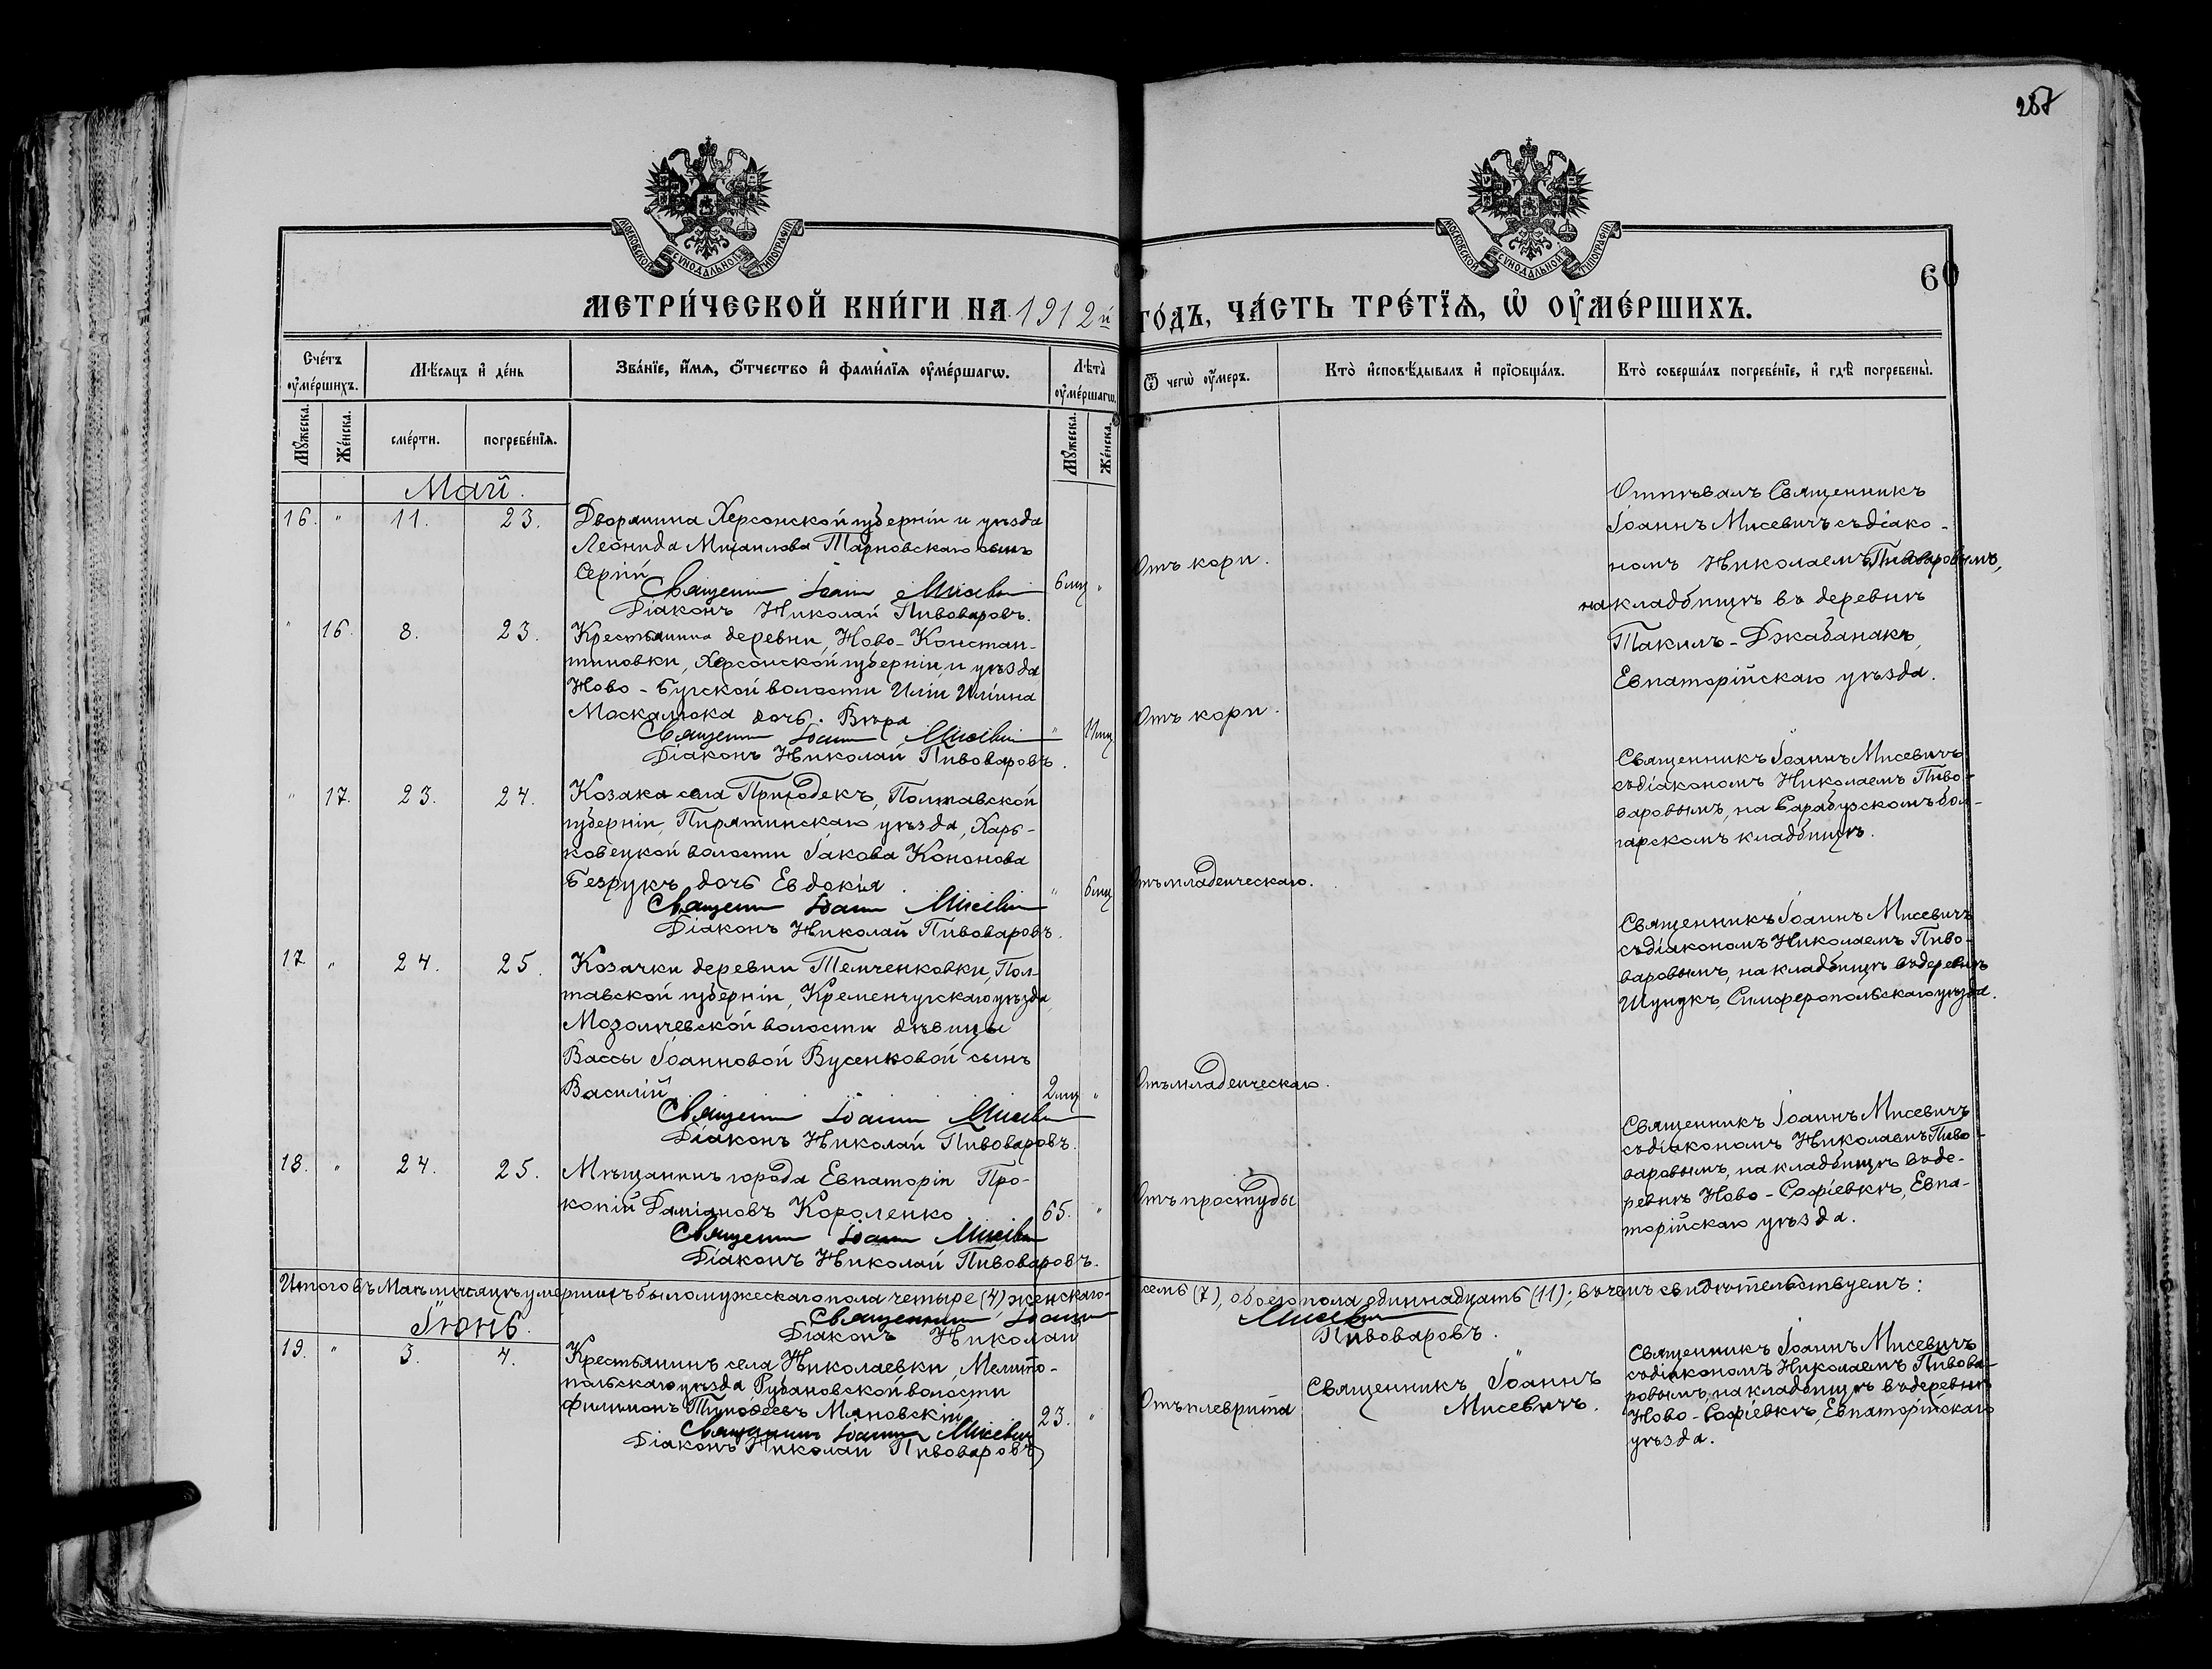 287
МОСКОВСКОЙ СѴНОДАЛЬНОЙ ТИПОГРАФІИ
МОСКОВСКОЙ СѴНОДАЛЬНОЙ ТИПОГРАФІИ
60
МЕТРИ́ЧЕСКОЙ КНИ́ГИ НА 1912й ГО́ДЪ, ЧА́СТЬ ТРЕ́ТЇѦ, Ѡ҆ ОУ҆МЕ́РШИХЪ.
Сче́тъ оу҆ме́ршихъ.
Мѣ́сяцъ и҆ де́нь
Зва́нїе, и҆́мѧ, ѻ҆́тчество и҆ фами́лїѧ оу҆ме́ршагѡ.
Лѣ́та оу҆ме́ршагѡ.
Ѿ чегѡ̀ оу҆́меръ.
Кто̀ и҆сповѣ́дывалъ и҆ прїѡбща́лъ.
Кто̀ соверша́лъ погребе́нїе, и҆ гдѣ̀ погребены̀.
Мꙋ́жеска.
Же́нска.
сме́рти.
погребе́нїѧ.
Мꙋ́жеска.
Же́нска.
Май.
16. " 11. 23.
Дворянина Херсонской губерніи и уѣзда
Леонида Михаилова Тарновскаго сынъ
Сергій
6 мц "
Отъ кори.
Священн Іоанн Мисевич
Діаконъ Николай Пивоваровъ.
Отпѣвалъ Священникъ
Іоаннъ Мисевичъ съ діако-
номъ Николаемъ Пивоваровымъ,
на кладбищѣ въ деревнѣ
Такилъ-Джабанакъ,
Евпаторійскаго уѣзда.
" 16. 8. 23.
Крестьянина деревни, Ново-Констан-
тиновки, Херсонской губерніи, и уѣзда
Ново-Бугской волости Иліи Иліина
Москалюка дочь Вѣра
" 11 мц
Отъ кори.
Священн Іоанн Мисевич
Діаконъ Николай Пивоваровъ.
Священникъ Іоаннъ Мисевичъ
съ діакономъ Николаемъ Пиво-
варовымъ, на Сарабузскомъ бол-
гарскомъ кладбищѣ.
" 17. 23. 24.
Козака села Приходекъ, Полтавской
губерніи, Пирятинскаго уѣзда, Харь-
ковецкой волости Іакова Кононова
Безрукъ дочь Евдокія
" 6 мц
Отъ младенческаго.
Священн Іоанн Мисевич
Діаконъ Николай Пивоваровъ.
Священникъ Іоаннъ Мисевичъ
съ діакономъ Николаемъ Пиво-
варовымъ, на кладбищѣ въ деревнѣ
Шунукъ, Симферопольскаго уѣзда.
17. " 24. 25.
Козачки деревни Темченковки, Пол-
тавской губерніи, Кременчугскаго уѣзда,
Мозолѣевской волости дѣвицы
Вассы Іоанновой Вусенковой сынъ
Василій
2 мц "
Отъ младенческаго.
Священн Іоанн Мисевич
Діаконъ Николай Пивоваровъ.
Священникъ Іоаннъ Мисевичъ
съ діакономъ Николаемъ Пиво-
варовымъ, на кладбищѣ въ де-
ревнѣ Ново-Софіевкѣ, Евпа-
торійскаго уѣзда.
18. " 24. 25.
Мѣщанинъ города Евпаторіи Про-
копій Даміановъ Короленко
65. "
Отъ простуды
Священн Іоанн Мисевич
Діаконъ Николай Пивоваровъ.
Итого въ Маѣ мѣсяцѣ умершихъ было мужескаго пола четыре (4) женскаго- семь (7), обоего пола одиннадцать (11); въ чемъ свидѣтельствуемъ:
Священник Іоанн Мисевич
Діаконъ Николай Пивоваровъ.
Іюнь.
19. " 3. 4.
Крестьянинъ села Николаевки, Мелито-
польскаго уѣзда Рубановской волости
Филимонъ Тимофеевъ Мяновскій
23. "
Отъ плеврита
Священникъ Іоаннъ
Мисевичъ.
Священникъ Іоаннъ Мисевич
Діаконъ Николай Пивоваровъ
Священникъ Іоаннъ Мисевичъ
съ діакономъ Николаемъ Пивова-
ровымъ, на кладбищѣ въ деревнѣ
Ново-Софіевкѣ, Евпаторійскаго
уѣзда.